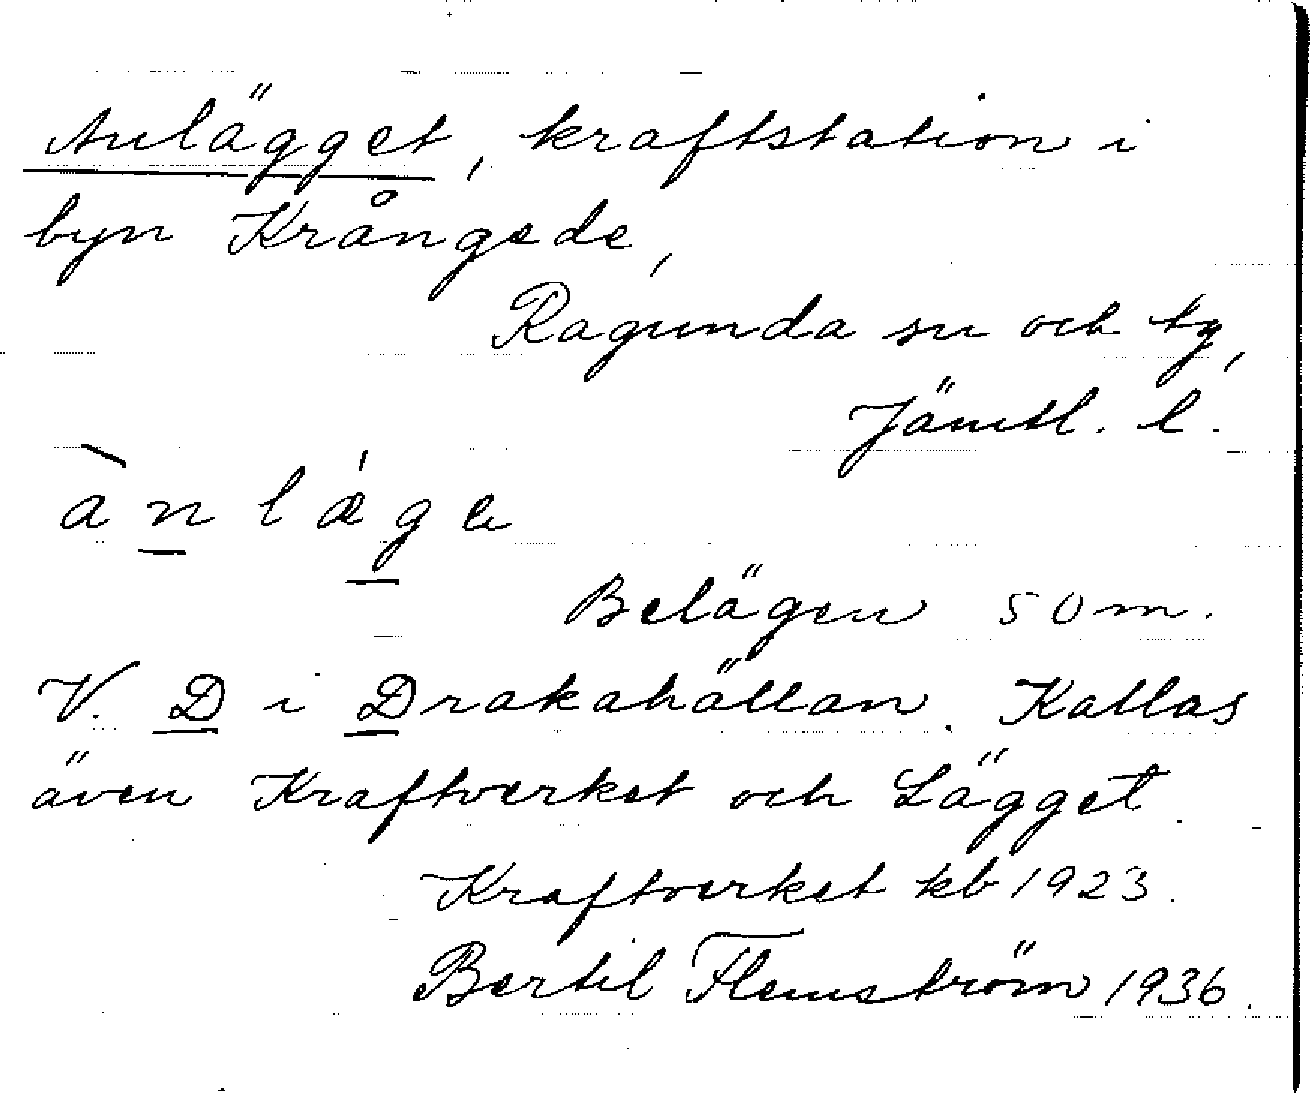 Anlägget, kraftstation i
byn Krångede,
Ragunda sn och tg,
Jämtl. l.
ànlǽge
Belägen 50 m.
V. D i Drakahällan. Kallas
även Kraftverket och Lägget.
Kraftverket kb 1923.
Bertil Flemström 1936.